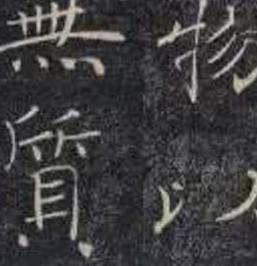 物以
無質